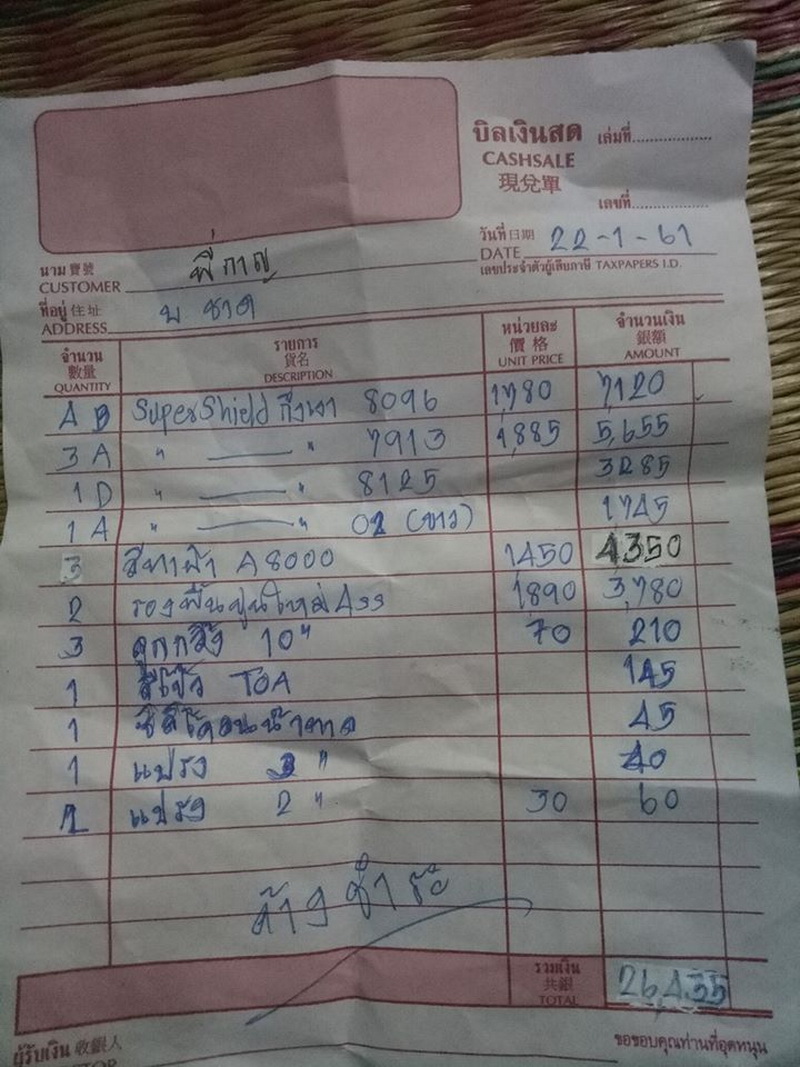 บิลเงินสด เล่มที่
CASHSALE
現兌單
เลขที่
วันที่ 日期 22-1-61
DATE
เลขประจำตัวผู้เสียภาษี TAXPAPERS I.D.
นาม 寶號 พี่กาญ
CUSTOMER
ที่อยู่ 住址
ADDRESS
จำนวน รายการ หน่วยละ จำนวนเงิน
數量 貨名 價格 銀額
QUANTITY DESCRIPTION UNIT PRICE AMOUNT
4 B SuperShield กึ่งเงา 8096 1,780 7,120
3 A " — " 7913 1,885 5,655
1 D " — " 8125 3285
1 A " — " 02 (ขาว) 1,745
3 สีทาฝ้า A8000 1450 4350
2 รองพื้นปูนใหม่ 1,890 3,780
3 ลูกกลิ้ง 10" 70 210
1 สีโป๊ว TOA 145
1 45
1 แปรง 3" 40
2 แปรง 2" 30 60
ค้างชำระ
รวมเงิน
共銀 26,435
TOTAL
ผู้รับเงิน 收銀人 ขอขอบคุณท่านที่อุดหนุน